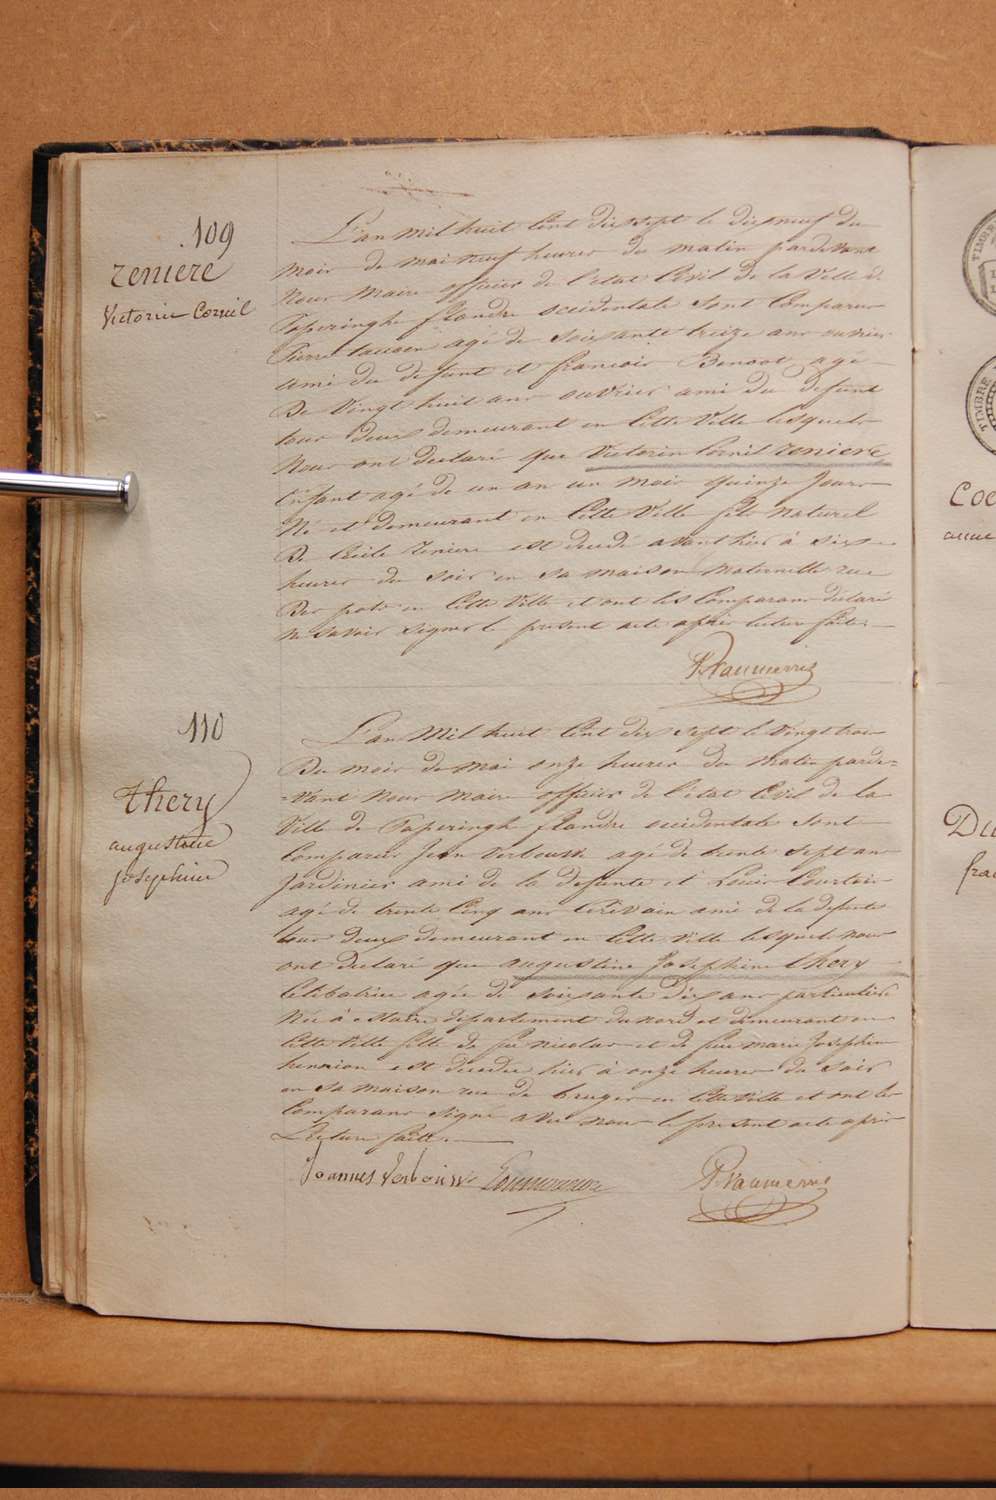 109
Zeniere
Victorin Cornil
L'an mil huit Cent dix sept le dix neuf du
mois de mai neuf heures du matin pardevant
nous maire officier de l'etat Civil de la Ville de
Poperinghe flandre occidentale sont Comparus
Pierre agé de soixante treize ans ouvrier
ami du defunt et francois Benoot agé
De Vingt huit ans ouvrier ami du defunt
tous deux demeurant en Cette Ville lesquels
nous ont declaré que Victorin Cornil Zeniere
Enfant agé de un an un mois quinze Jours
Né et demeurant en Cette Ville fils naturel
De Cecile Zeniere est decedé avant hier à six
heures du soir en sa maison maternelle rue
Des pots en Cette Ville et ont les Comparans declaré
ne savoir signer le present acte après lecture faite.
110
thery
augustine
josephine
L'an Mil huit Cent dix sept le Vingt trois
Du mois de Mai onze heures du matin parde=
=vant nous maire officier de l'etat Civil de la
Ville de Poperinghe flandre occidentale sont
Comparus Jean Verbouw agé de trente sept ans
Jardinier ami de la defunte et Louis Courtois
agé de trente Cinq ans Ecrivain ami de la defunte
tous deux demeurant en Cette Ville lesquels nous
ont declaré que augustine Josephine thery
Celibatrice agée de soixante Dix ans particulière
Née à Estaire departement du nord et demeurant en
Cette Ville fille de feu nicolas et de feue marie Josephine
henrion est decedée hier à onze heures du soir
en sa maison rue de bruges en Cette Ville et ont les
Comparans signé avec nous le present acte après
Lecture faitte.
Joannes Verbouw
TIMBRE
TIMBRE